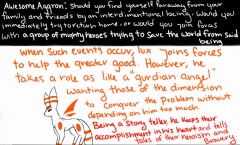 Awesome Aggron: Should you find yourself faraway from your
family and friends by an interdimensional being, would you
immediately try to return home or would you join forces
with a group of mighty heroes trying to save the world from said
being
When such events occur, lux joins forces
to help the greater good. However, he
takes a role as like a "gurdian angel"
wanting those of the dimension
to conquer the problem without
depending on him too much
Being a Story teller, he keeps their
accomplishment in his heart and tells
tales of their heroism and
Bravery